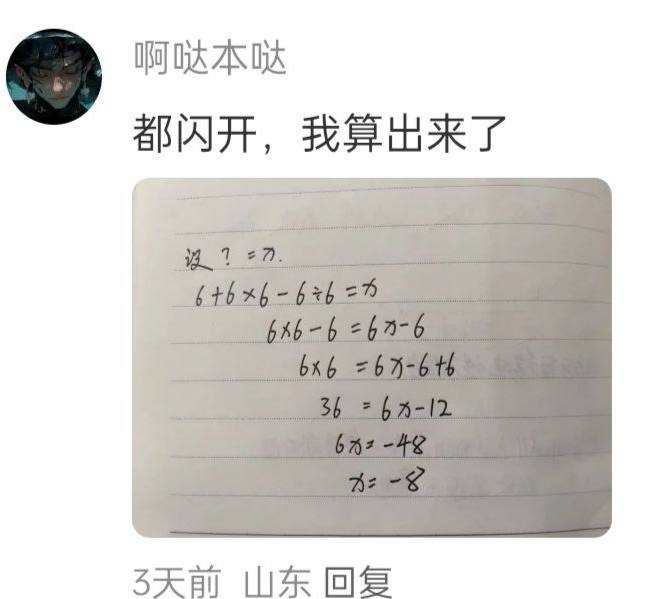 啊哒本哒
都闪开，我算出来了
设 ? = x.
6+6×6-6÷6=x
6×6-6=6x-6
6×6=6x-6+6
36=6x-12
6x=-48
x=-8
3天前 山东 回复